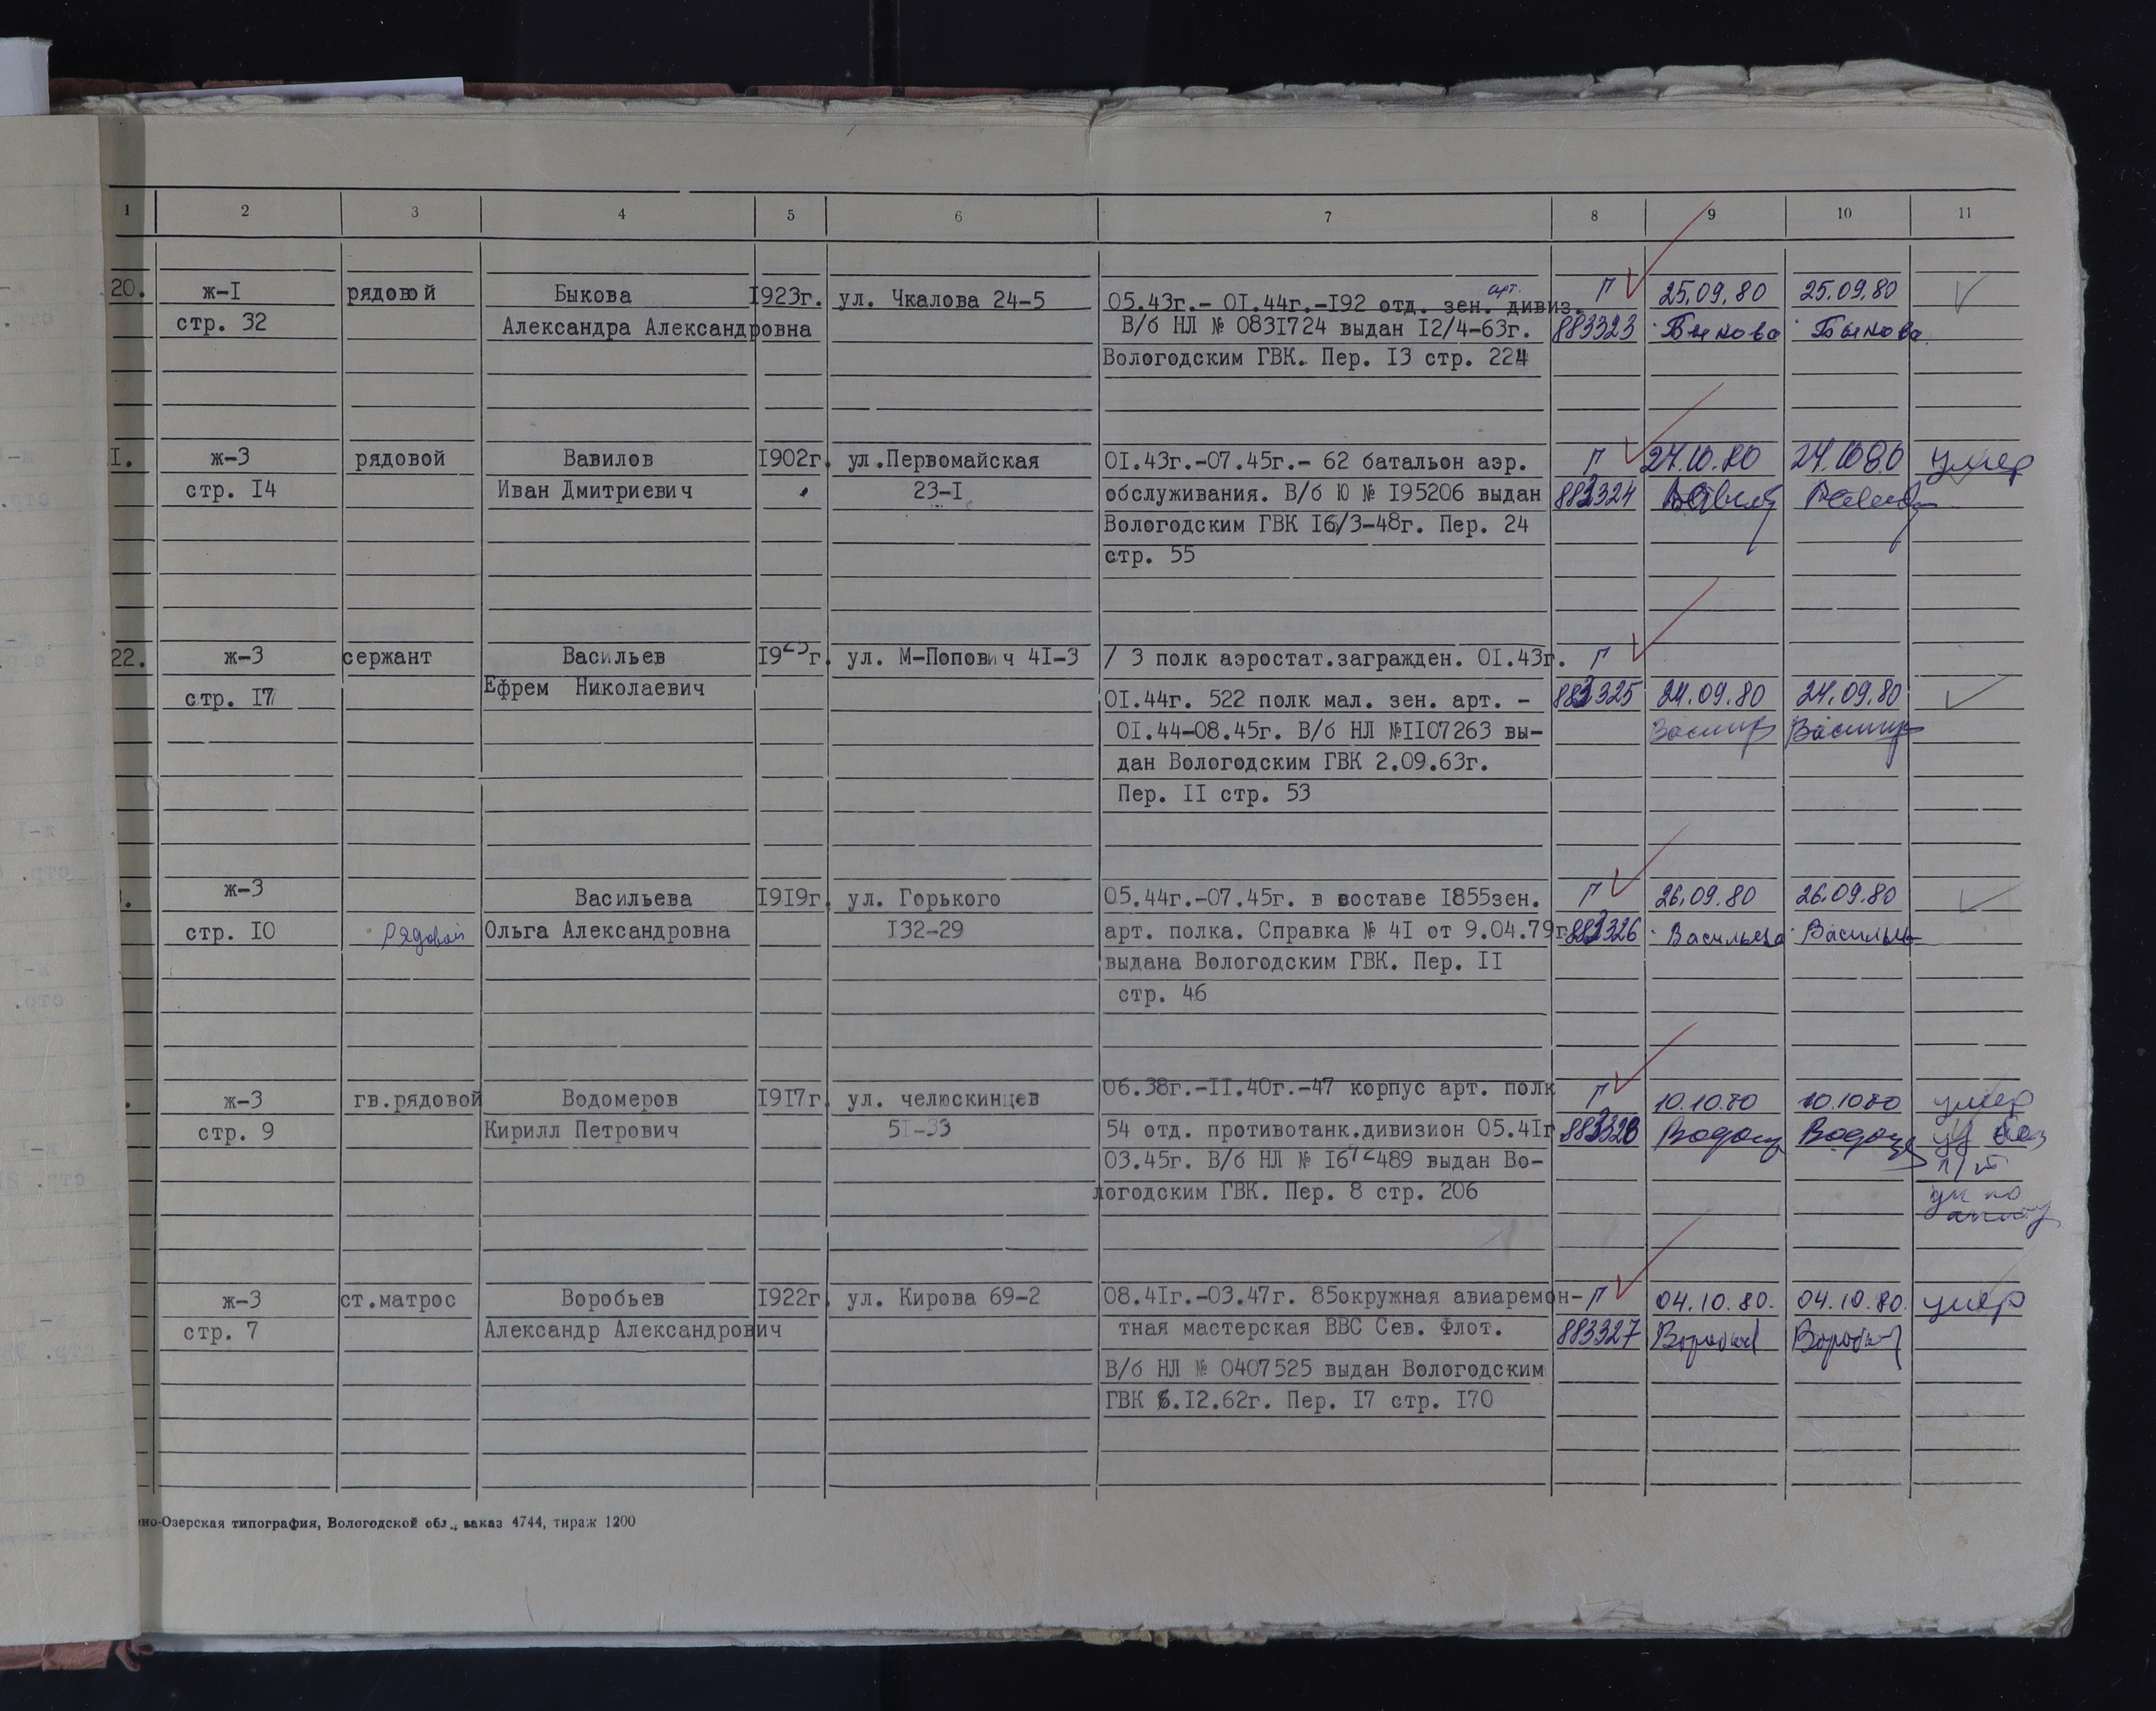 1 2 3 4 5 6 7 8 9 10 11
20. ж-I рядовой Быкова I923г. ул. Чкалова 24-5 05.43г.- 0I.44г.-I92 отд. зен. арт. дивиз. Г 25.09.80 25.09.80
стр. 32 Александра Александровна В/б НЛ № 083I724 выдан I2/4-63г. 883323 Быкова Быкова
Вологодским ГВК. Пер. I3 стр. 224
I. ж-3 рядовой Вавилов I902г. ул.Первомайская 0I.43г.-07.45г.- 62 батальон аэр. Г 24.10.80 24.10.80 умер
стр. I4 Иван Дмитриевич 23-I обслуживания. В/б Ю № I95206 выдан 883324
Вологодским ГВК I6/3-48г. Пер. 24
стр. 55
22. ж-3 сержант Васильев I925г. ул. М-Попович 4I-3 / 3 полк аэростат.загражден. 0I.43г. Г
стр. I7 Ефрем Николаевич 0I.44г. 522 полк мал. зен. арт. - 883325 24.09.80 24.09.80
0I.44-08.45г. В/б НЛ №II07263 вы-
дан Вологодским ГВК 2.09.63г.
Пер. II стр. 53
. ж-3 Васильева I9I9г. ул. Горького 05.44г.-07.45г. в составе I855зен. Г 26.09.80 26.09.80
стр. I0 Рядовой Ольга Александровна I32-29 арт. полка. Справка № 4I от 9.04.79г. 883326 Васильева Васильева
выдана Вологодским ГВК. Пер. II
стр. 46
. ж-3 гв.рядовой Водомеров I9I7г. ул. челюскинцев 06.38г.-II.40г.-47 корпус арт. полк Г 10.10.80 10.10.80 умер
стр. 9 Кирилл Петрович 5I-33 54 отд. противотанк.дивизион 05.4Iг. 883328
03.45г. В/б НЛ № I672489 выдан Во-
логодским ГВК. Пер. 8 стр. 206
ж-3 ст.матрос Воробьев I922г. ул. Кирова 69-2 08.4Iг.-03.47г. 85окружная авиаремон- Г 04.10.80. 04.10.80. умер
стр. 7 Александр Александрович тная мастерская ВВС Сев. Флот. 883327
В/б НЛ № 0407525 выдан Вологодским
ГВК 6.I2.62г. Пер. I7 стр. I70
но-Озерская типография, Вологодской обл., заказ 4744, тираж 1200